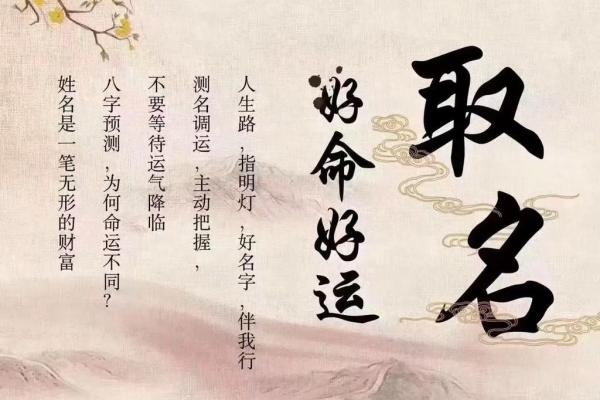 取名
好命好运
人生路,指明灯,好名字,伴我行
测名调运,主动把握,
不要等待运气降临
八字预测,为何命运不同?
姓名是一笔无形的财富